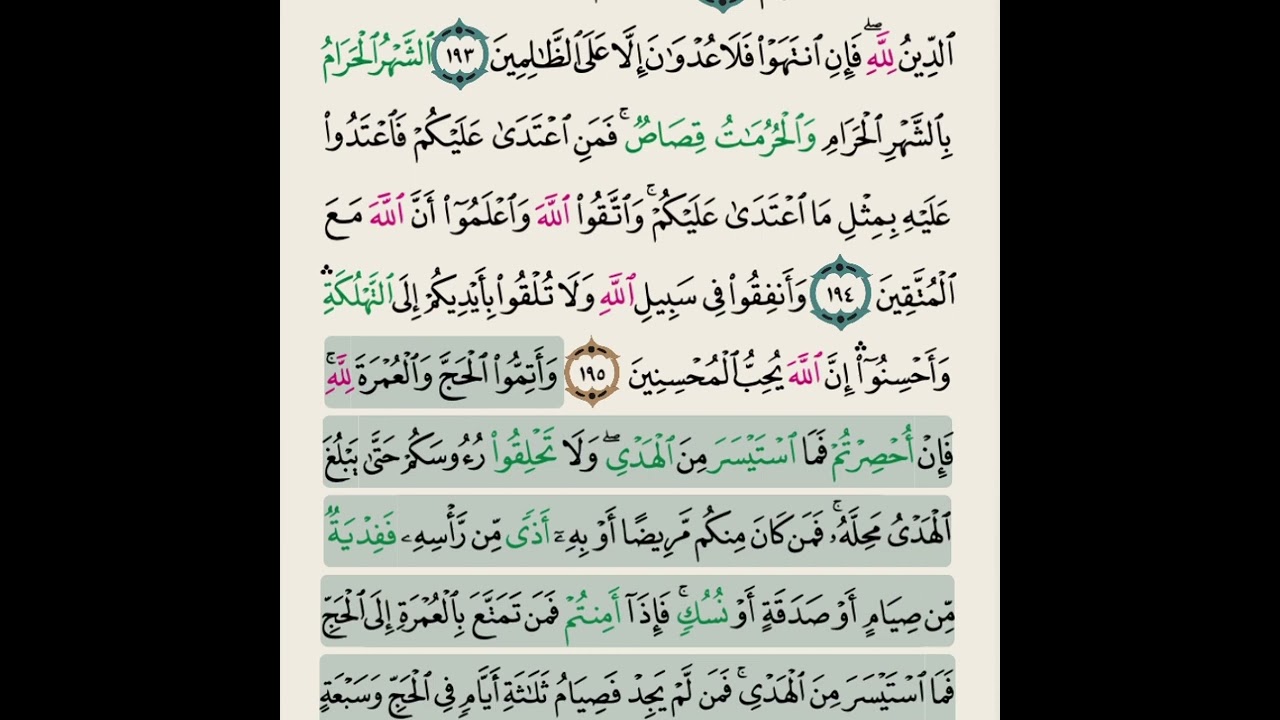 ٱلدِّينُ لِلَّهِۖ فَإِنِ ٱنتَهَوۡاْ فَلَا عُدۡوَٰنَ إِلَّا عَلَى ٱلظَّٰلِمِينَ ١٩٣ ٱلشَّهۡرُ ٱلۡحَرَامُ
بِٱلشَّهۡرِ ٱلۡحَرَامِ وَٱلۡحُرُمَٰتُ قِصَاصٞۚ فَمَنِ ٱعۡتَدَىٰ عَلَيۡكُمۡ فَٱعۡتَدُواْ
عَلَيۡهِ بِمِثۡلِ مَا ٱعۡتَدَىٰ عَلَيۡكُمۡۚ وَٱتَّقُواْ ٱللَّهَ وَٱعۡلَمُوٓاْ أَنَّ ٱللَّهَ مَعَ
ٱلۡمُتَّقِينَ ١٩٤ وَأَنفِقُواْ فِي سَبِيلِ ٱللَّهِ وَلَا تُلۡقُواْ بِأَيۡدِيكُمۡ إِلَى ٱلتَّهۡلُكَةِۛ
وَأَحۡسِنُوٓاْۛ إِنَّ ٱللَّهَ يُحِبُّ ٱلۡمُحۡسِنِينَ ١٩٥ وَأَتِمُّواْ ٱلۡحَجَّ وَٱلۡعُمۡرَةَ لِلَّهِۚ
فَإِنۡ أُحۡصِرۡتُمۡ فَمَا ٱسۡتَيۡسَرَ مِنَ ٱلۡهَدۡيِۖ وَلَا تَحۡلِقُواْ رُءُوسَكُمۡ حَتَّىٰ يَبۡلُغَ
ٱلۡهَدۡيُ مَحِلَّهُۥۚ فَمَن كَانَ مِنكُم مَّرِيضًا أَوۡ بِهِۦٓ أَذٗى مِّن رَّأۡسِهِۦ فَفِدۡيَةٞ
مِّن صِيَامٍ أَوۡ صَدَقَةٍ أَوۡ نُسُكٖۚ فَإِذَآ أَمِنتُمۡ فَمَن تَمَتَّعَ بِٱلۡعُمۡرَةِ إِلَى ٱلۡحَجِّ
فَمَا ٱسۡتَيۡسَرَ مِنَ ٱلۡهَدۡيِۚ فَمَن لَّمۡ يَجِدۡ فَصِيَامُ ثَلَٰثَةِ أَيَّامٖ فِي ٱلۡحَجِّ وَسَبۡعَةٍ